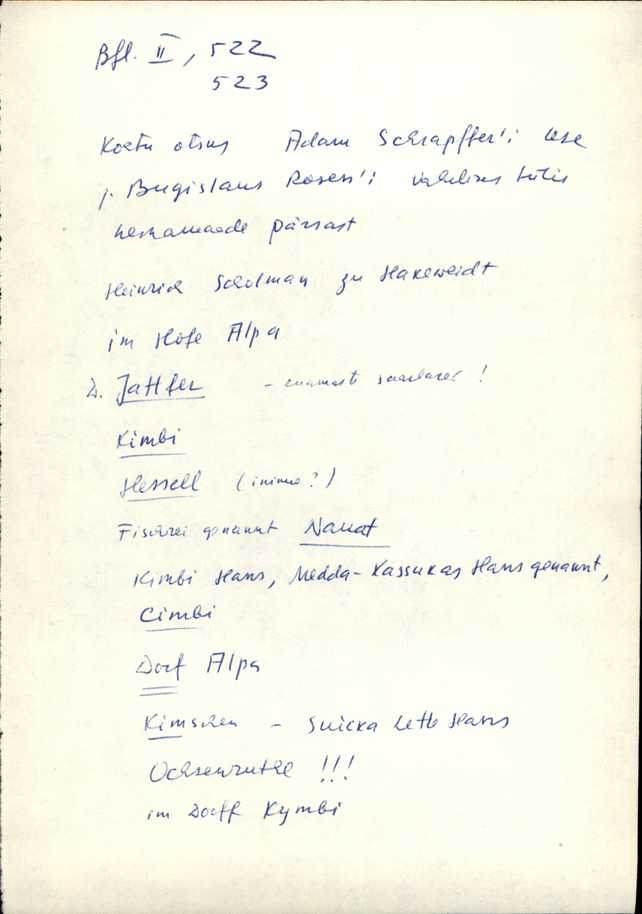 Bfl. II, 522
523
Kohtu otsus Adam Schrapffer'i ise
j. Bugislaus Rosen'i vahelises tülis
heinamaade pärast
Heinrich Scholman zu Hakeweidt
im Hofe Alpa
D. Jattfer - enamasti saarlased!
Kimbi
Hessell (inimo?)
Fischrei genannt Nauat
Kimbi Hans, Medda-Kassukas Hans genannt,
Cimbi
Dorf Alpa
Kimschen - Suicka Letb Hans
Ochsenruthe !!!
im Dorff Kymbi